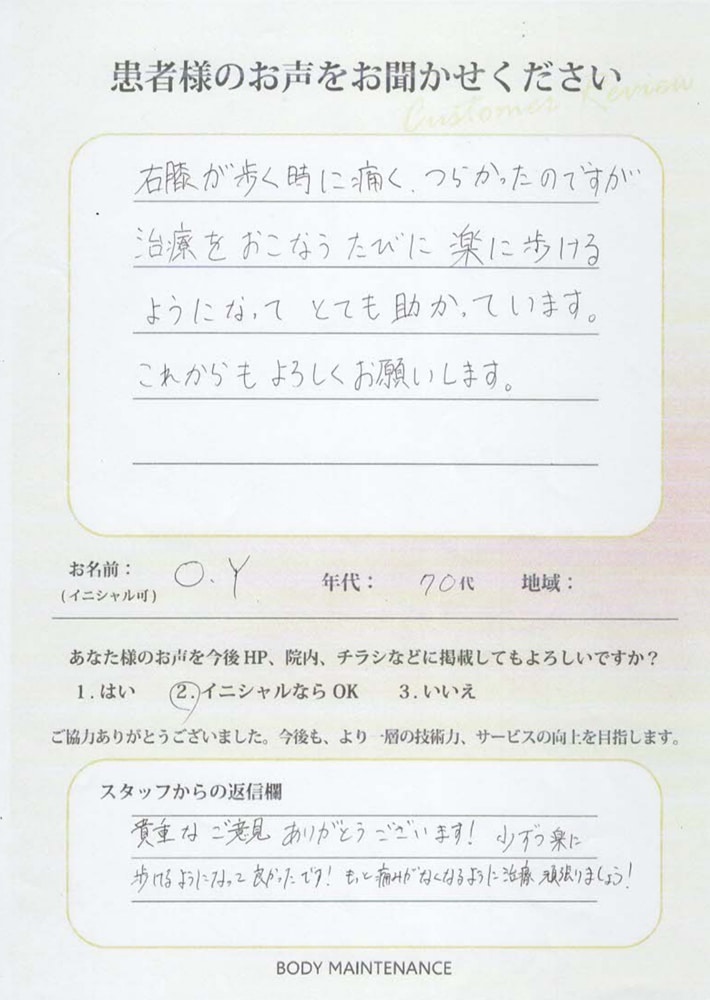 患者様のお声をお聞かせください
Customer Review
右膝が歩く時に痛く、つらかったのですが
治療をおこなうたびに楽に歩ける
ようになって とても助かっています。
これからもよろしくお願いします。
お名前: O.Y 年代: 70代 地域:
(イニシャル可)
あなた様のお声を今後HP、院内、チラシなどに掲載してもよろしいですか?
1.はい 2.イニシャルならOK 3.いいえ
ご協力ありがとうございました。今後も、より一層の技術力、サービスの向上を目指します。
スタッフからの返信欄
貴重なご意見 ありがとうございます! 少ずつ楽に
歩けるようになって良かったです! もっと痛みがなくなるように治療 頑張りましょう!
BODY MAINTENANCE